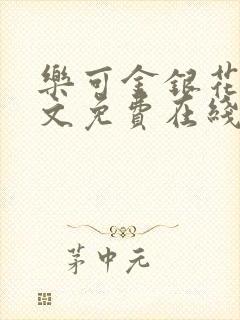 樂可金銀花
文免費在綫
茅中元